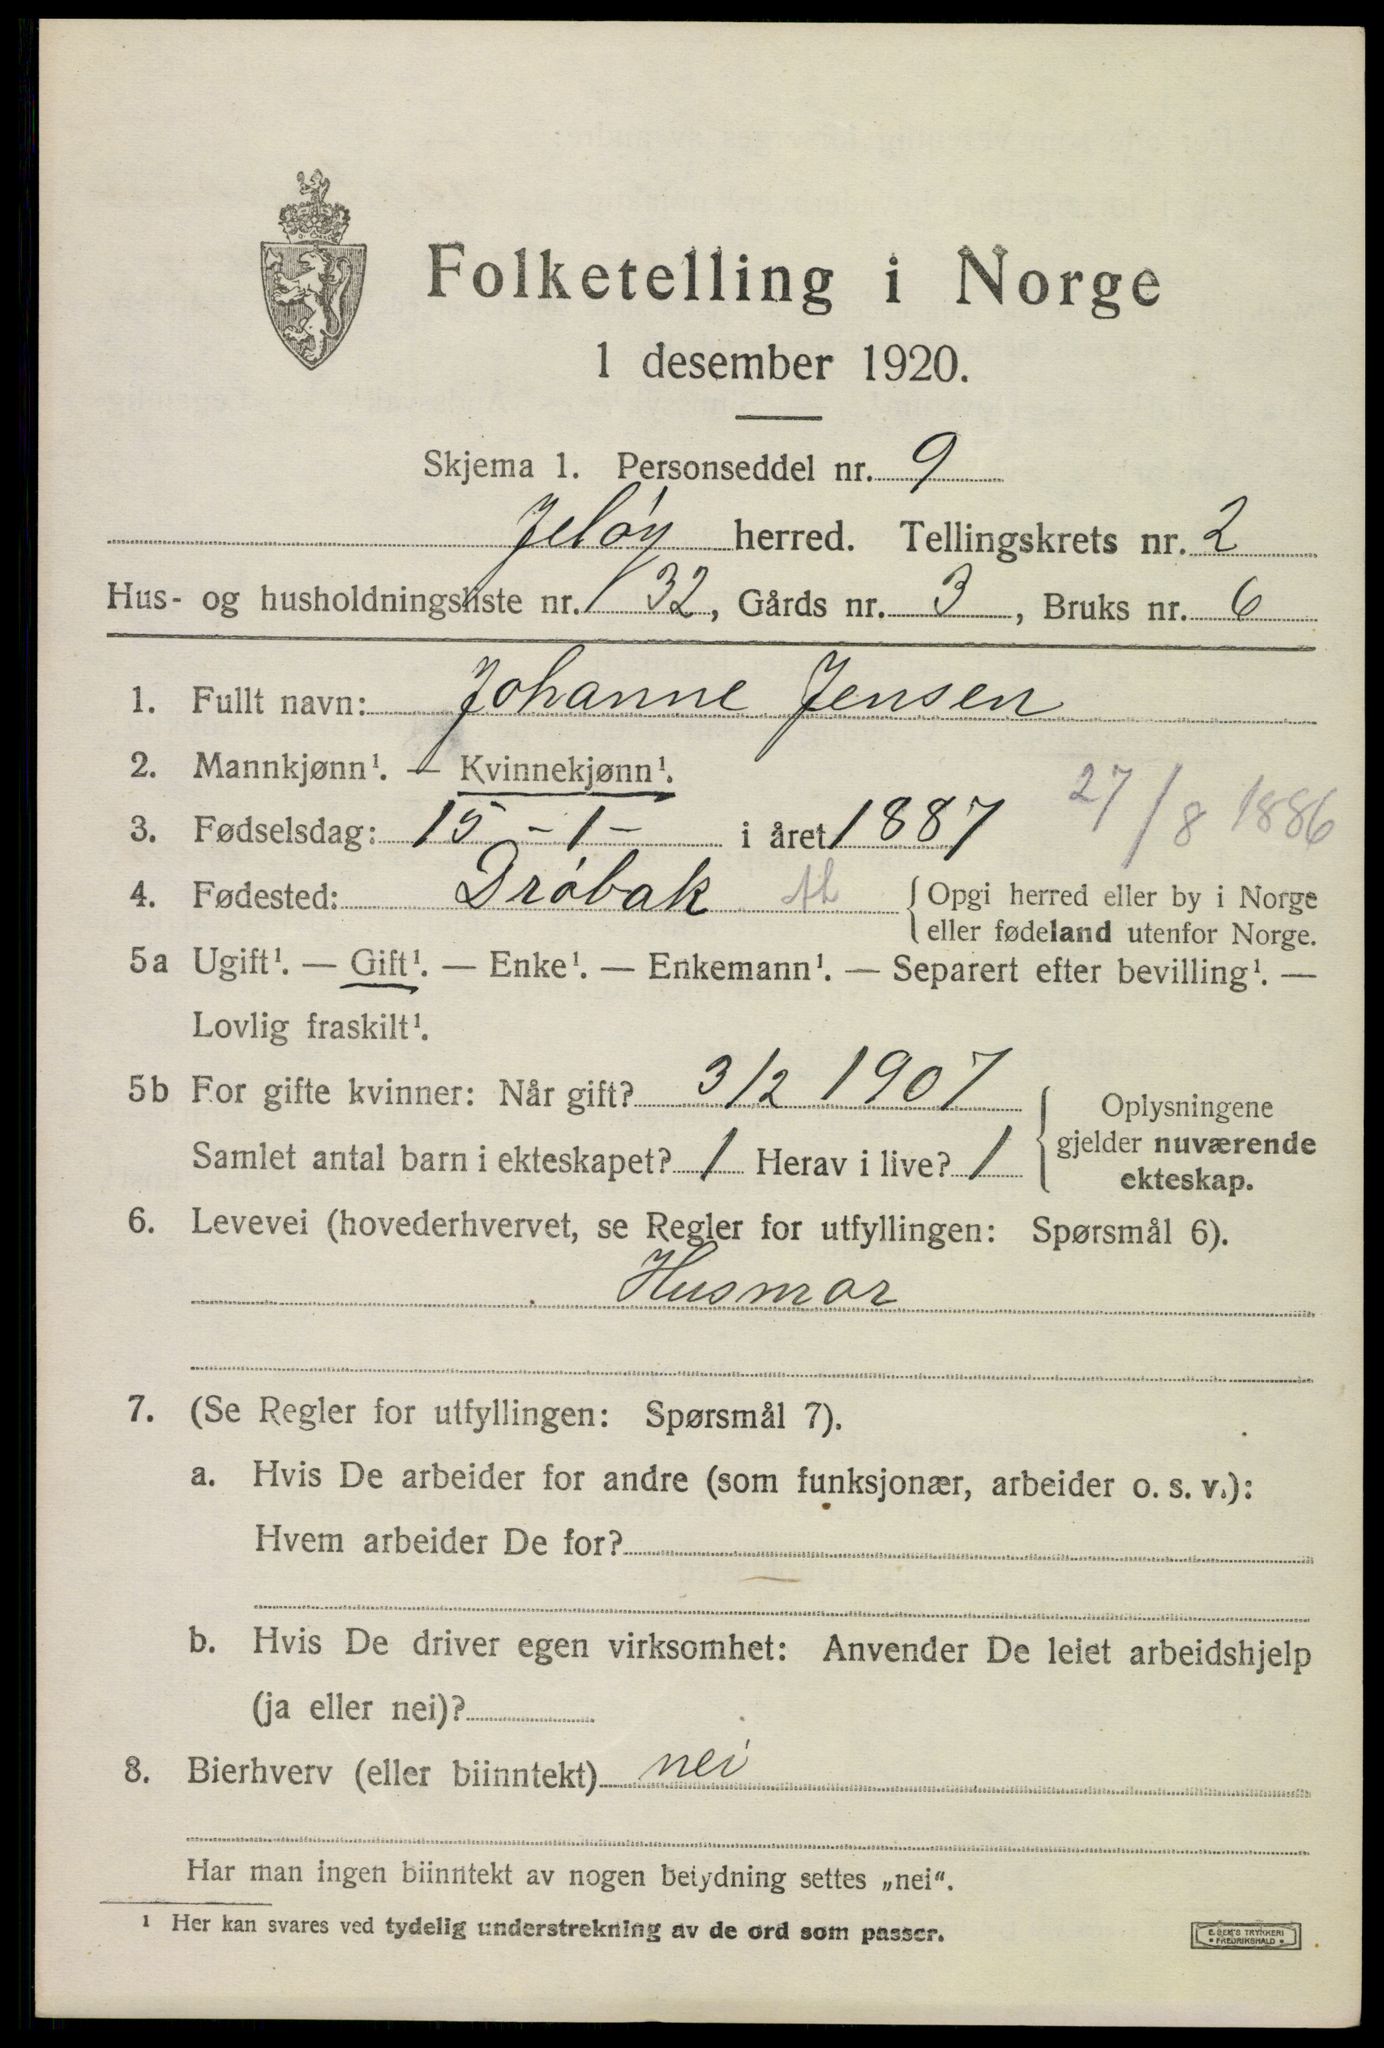 Folketelling i Norge
1 desember 1920.
Skjema 1. Personseddel nr. 9
Jeløy herred. Tellingskrets nr. 2
Hus- og husholdningsliste nr. 32, Gårds nr. 3, Bruks nr. 6
1. Fullt navn: Johanne Jensen
2. Mannkjønn¹. — Kvinnekjønn¹.
3. Fødselsdag: 15 - 1 - i året 1887 27/8 1886
4. Fødested: Drøbak Ak { Opgi herred eller by i Norge
eller fødeland utenfor Norge.
5a Ugift¹. — Gift¹. — Enke¹. — Enkemann¹. — Separert efter bevilling¹. —
Lovlig fraskilt¹.
5b For gifte kvinner: Når gift? 3/2 1907
Samlet antal barn i ekteskapet? 1 Herav i live? 1
{ Oplysningene
gjelder nuværende
ekteskap.
6. Levevei (hovederhvervet, se Regler for utfyllingen: Spørsmål 6).
Husmor
7. (Se Regler for utfyllingen: Spørsmål 7).
a. Hvis De arbeider for andre (som funksjonær, arbeider o. s. v.):
Hvem arbeider De for?
b. Hvis De driver egen virksomhet: Anvender De leiet arbeidshjelp
(ja eller nei)?
8. Bierhverv (eller biinntekt) nei
Har man ingen biinntekt av nogen betydning settes „nei“.
¹ Her kan svares ved tydelig understrekning av de ord som passer.
E. SEM'S TRYKKERI
• FREDRIKSHALD •